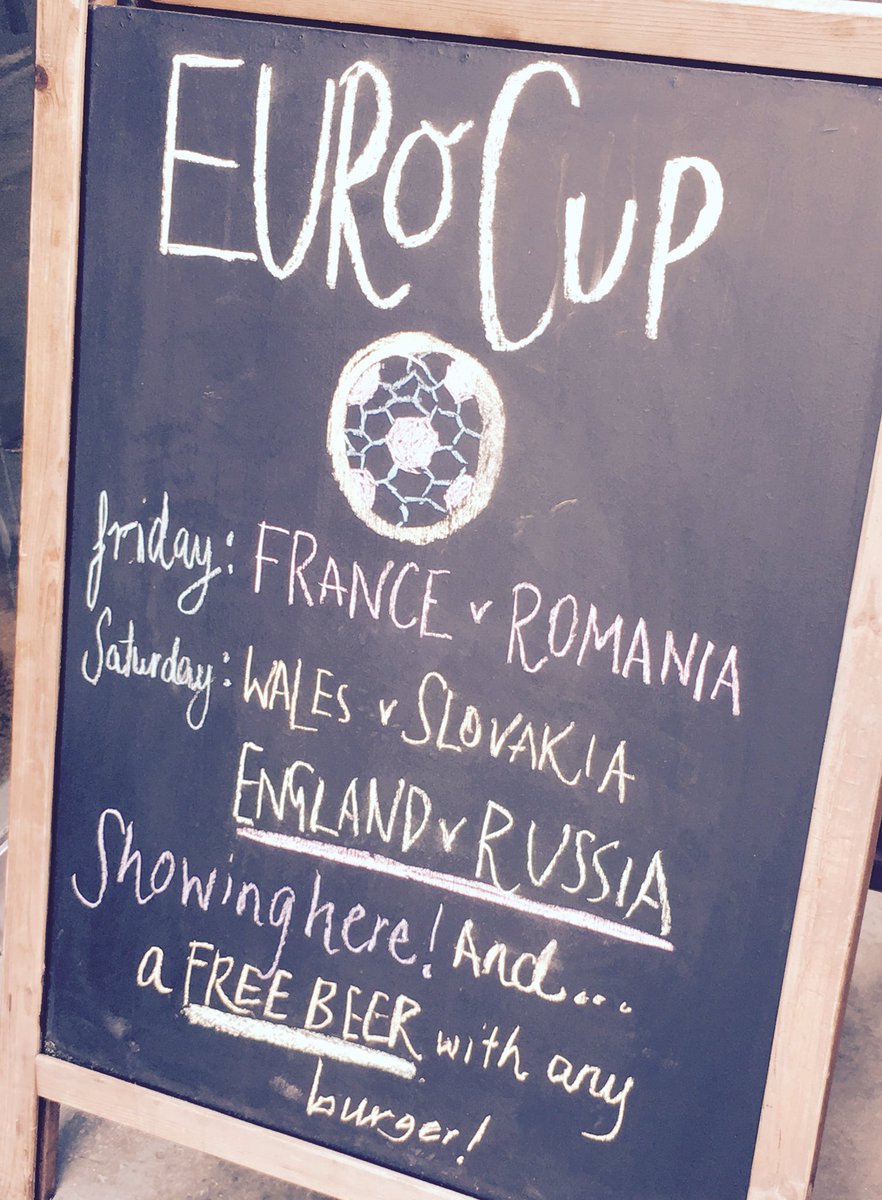 EURO CUP
friday: FRANCE v ROMANIA
Saturday: WALES v SLOVAKIA
ENGLAND v RUSSIA
Showing here! And...
a FREE BEER with any
burger!